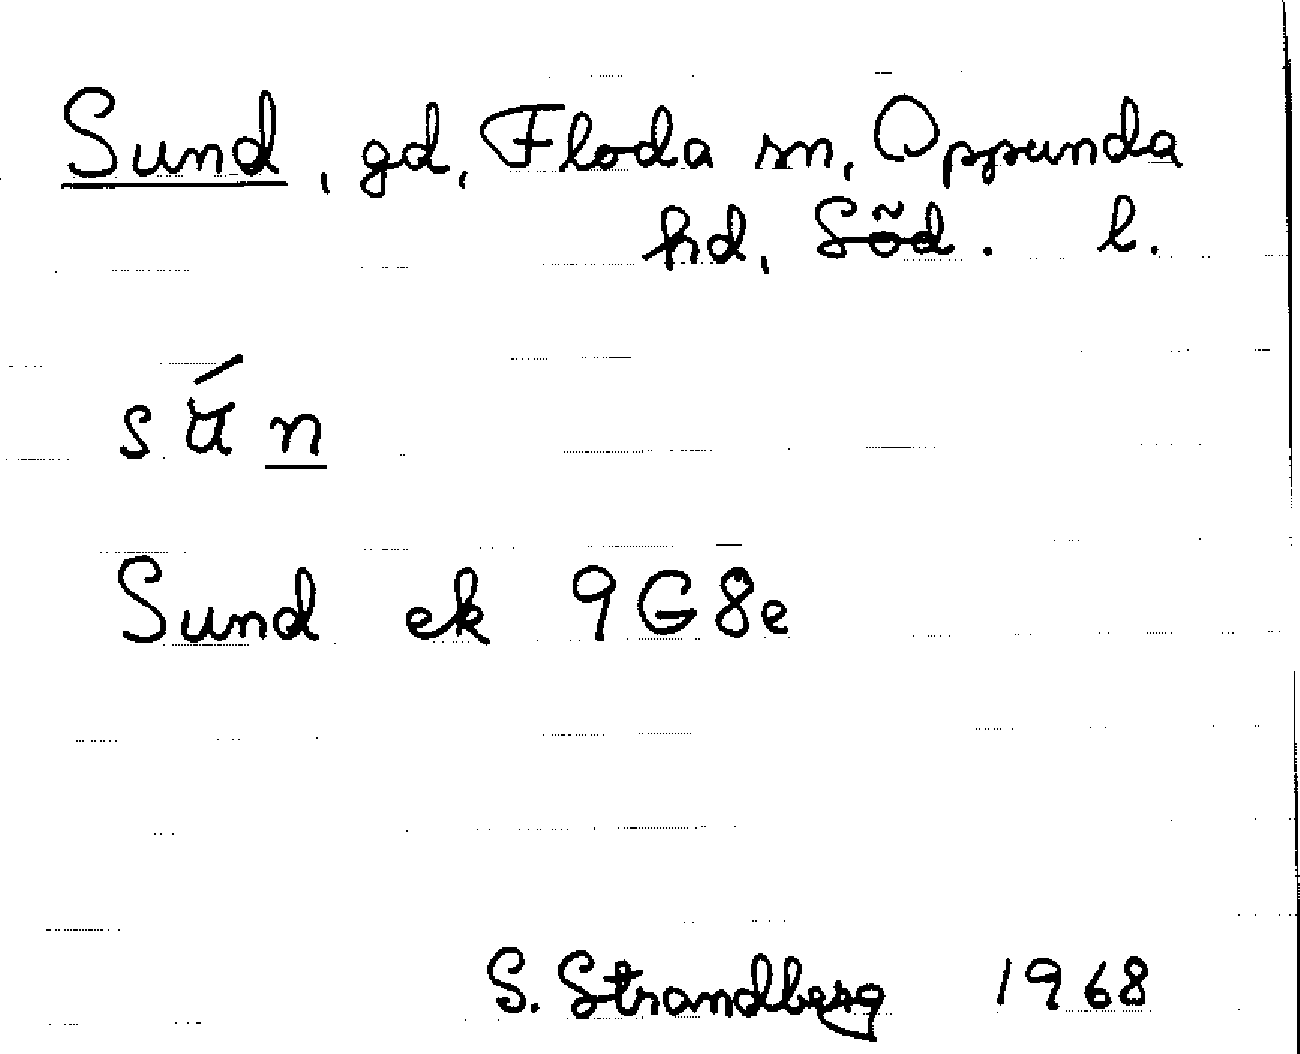 Sund, gd, Floda sn, Oppunda
hd, Söd. l.
sú̵n
Sund ek 9G8e
S. Strandberg 1968